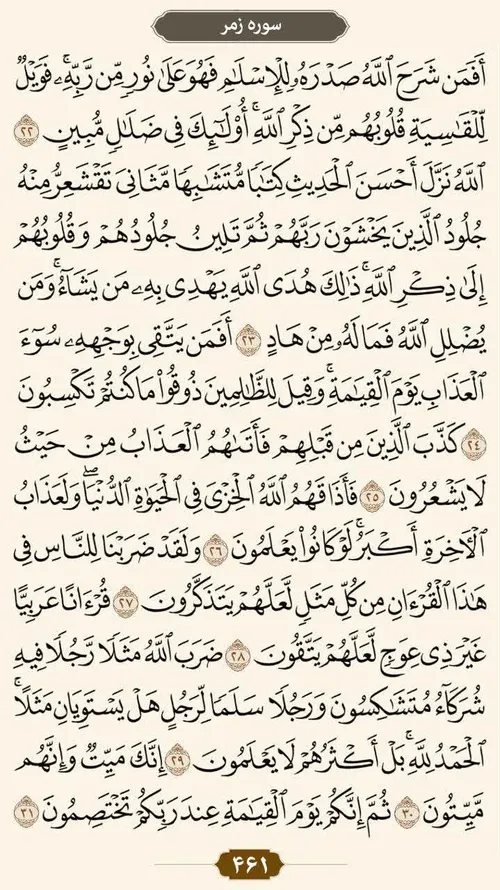 سوره زمر
أَفَمَن شَرَحَ ٱللَّهُ صَدْرَهُۥ لِلْإِسْلَـٰمِ فَهُوَ عَلَىٰ نُورٍ مِّن رَّبِّهِۦ ۚ فَوَيْلٌ
لِّلْقَـٰسِيَةِ قُلُوبُهُم مِّن ذِكْرِ ٱللَّهِ ۚ أُو۟لَـٰٓئِكَ فِى ضَلَـٰلٍ مُّبِينٍ ٢٢
ٱللَّهُ نَزَّلَ أَحْسَنَ ٱلْحَدِيثِ كِتَـٰبًا مُّتَشَـٰبِهًا مَّثَانِىَ تَقْشَعِرُّ مِنْهُ
جُلُودُ ٱلَّذِينَ يَخْشَوْنَ رَبَّهُمْ ثُمَّ تَلِينُ جُلُودُهُمْ وَقُلُوبُهُمْ
إِلَىٰ ذِكْرِ ٱللَّهِ ۚ ذَٰلِكَ هُدَى ٱللَّهِ يَهْدِى بِهِۦ مَن يَشَآءُ ۚ وَمَن
يُضْلِلِ ٱللَّهُ فَمَا لَهُۥ مِنْ هَادٍ ٢٣ أَفَمَن يَتَّقِى بِوَجْهِهِۦ سُوٓءَ
ٱلْعَذَابِ يَوْمَ ٱلْقِيَـٰمَةِ ۚ وَقِيلَ لِلظَّـٰلِمِينَ ذُوقُوا۟ مَا كُنتُمْ تَكْسِبُونَ
٢٤ كَذَّبَ ٱلَّذِينَ مِن قَبْلِهِمْ فَأَتَىٰهُمُ ٱلْعَذَابُ مِنْ حَيْثُ
لَا يَشْعُرُونَ ٢٥ فَأَذَاقَهُمُ ٱللَّهُ ٱلْخِزْىَ فِى ٱلْحَيَوٰةِ ٱلدُّنْيَا ۖ وَلَعَذَابُ
ٱلْـَٔاخِرَةِ أَكْبَرُ ۚ لَوْ كَانُوا۟ يَعْلَمُونَ ٢٦ وَلَقَدْ ضَرَبْنَا لِلنَّاسِ فِى
هَـٰذَا ٱلْقُرْءَانِ مِن كُلِّ مَثَلٍ لَّعَلَّهُمْ يَتَذَكَّرُونَ ٢٧ قُرْءَانًا عَرَبِيًّا
غَيْرَ ذِى عِوَجٍ لَّعَلَّهُمْ يَتَّقُونَ ٢٨ ضَرَبَ ٱللَّهُ مَثَلًا رَّجُلًا فِيهِ
شُرَكَآءُ مُتَشَـٰكِسُونَ وَرَجُلًا سَلَمًا لِّرَجُلٍ هَلْ يَسْتَوِيَانِ مَثَلًا ۚ
ٱلْحَمْدُ لِلَّهِ ۚ بَلْ أَكْثَرُهُمْ لَا يَعْلَمُونَ ٢٩ إِنَّكَ مَيِّتٌ وَإِنَّهُم
مَّيِّتُونَ ٣٠ ثُمَّ إِنَّكُمْ يَوْمَ ٱلْقِيَـٰمَةِ عِندَ رَبِّكُمْ تَخْتَصِمُونَ ٣١
۴۶۱